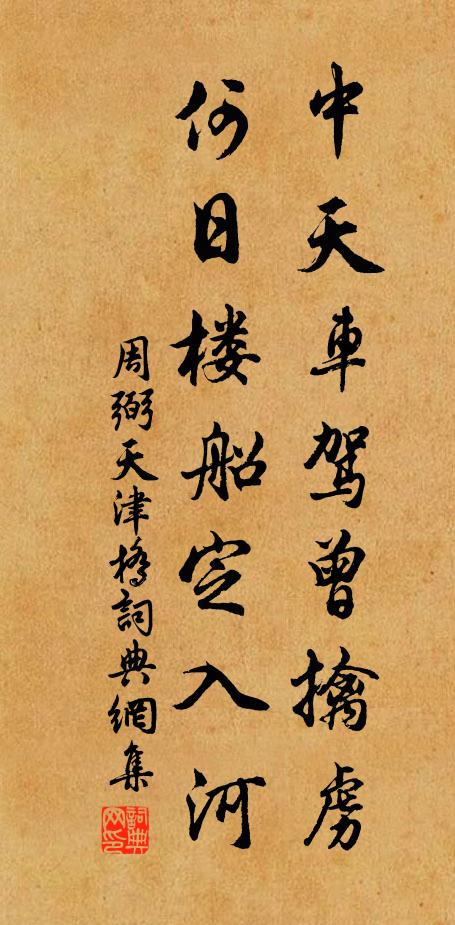 中天車駕曾擒虜
何日楼船定入河
周弼天津橋詞典網集
詞典网印